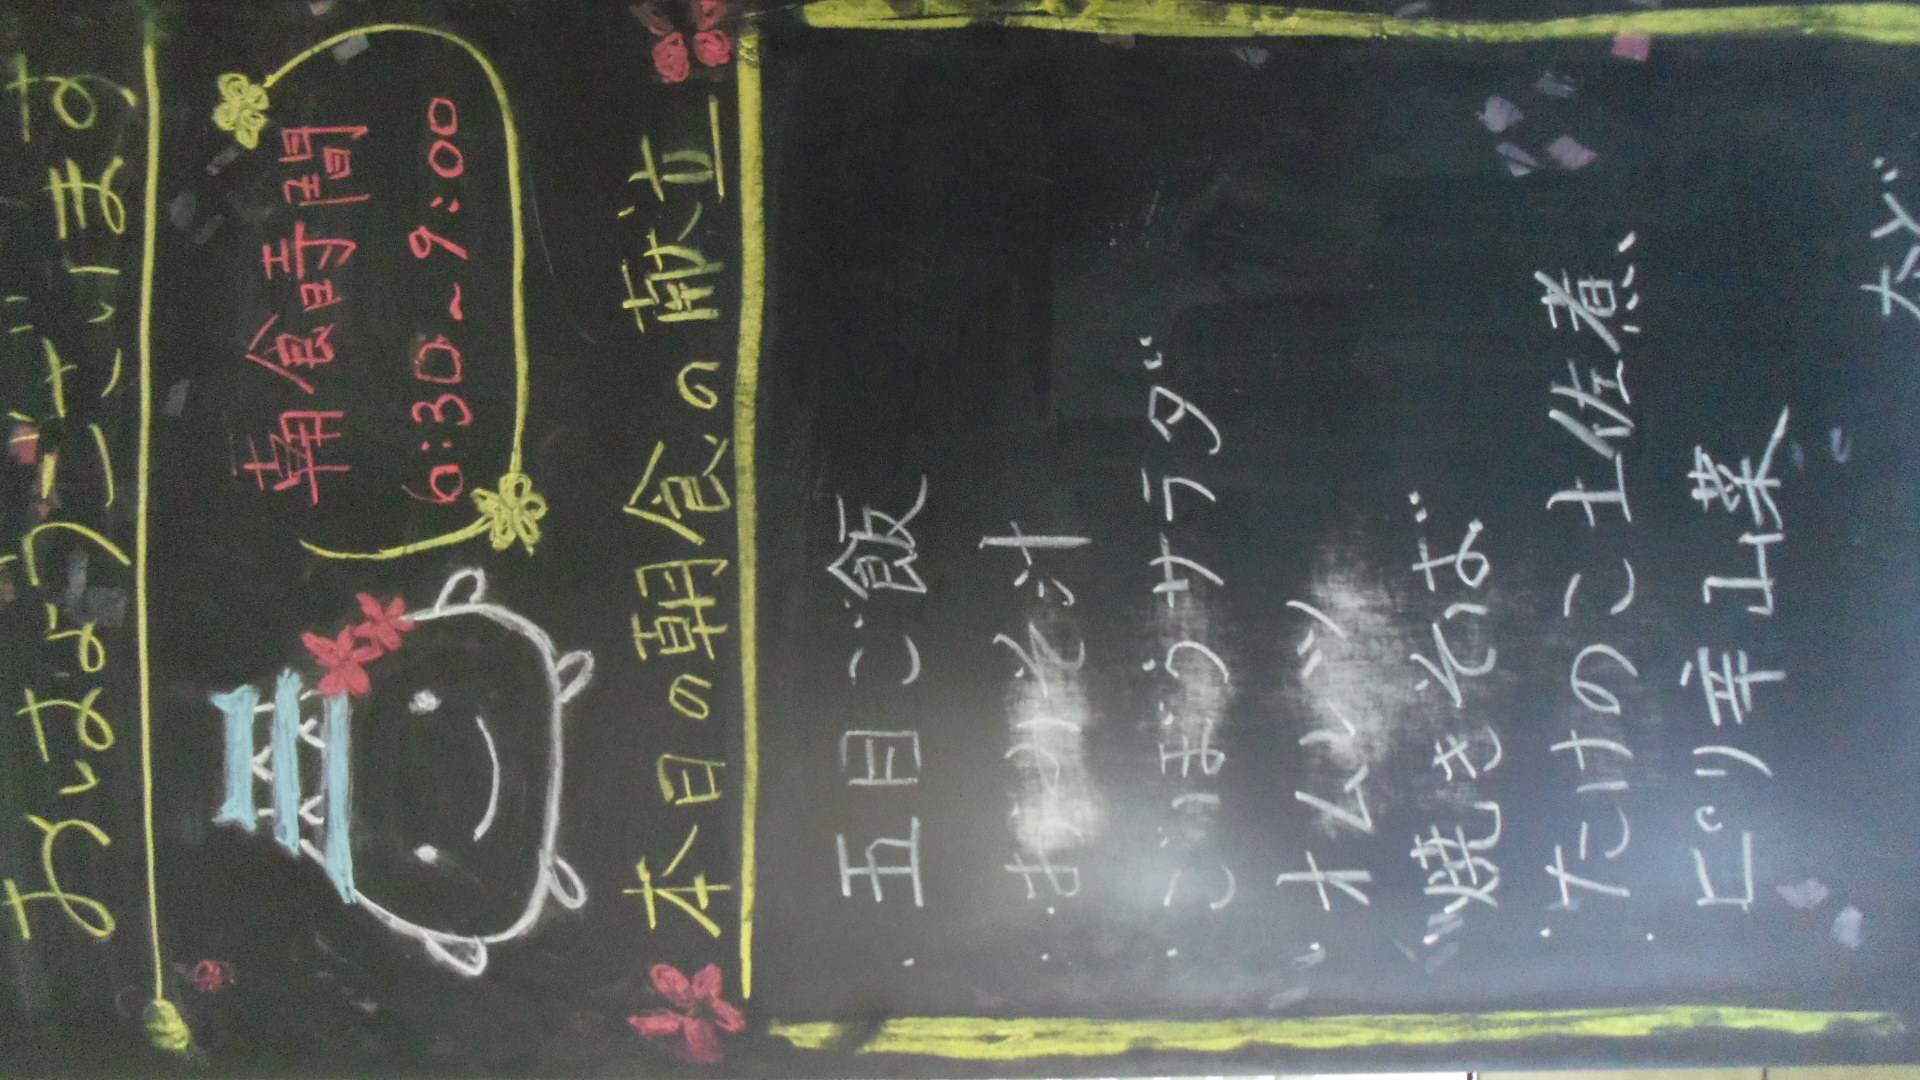 おはようございます
朝食時間
6:30~9:00
本日の朝食の献立
・五目ご飯
・みそ汁
・ごぼうサラダ
・オムレツ
・焼きそば
・たけのこ土佐煮
・ピリ辛山菜
など